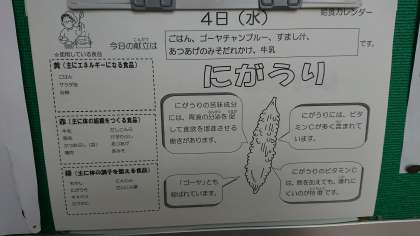 給食カレンダー
4日(水)
今日の献立は
こんだて
ごはん、ゴーヤチャンプルー、すまし汁、
あつあげのみそだれかけ、牛乳
です。
※使用している食品
黄(主にエネルギーになる食品)
ごはん
サラダ油
赤(主に体の組織をつくる食品)
牛乳
緑(主に体の調子を整える食品)
もやし
にんじん
にがうり
キャベツ
にがうり
にがうりの苦味成分
には、胃液の分泌を促
して食欲を増進させる
働きがあります。
にがうりには、ビタ
ミンCが多く含まれて
います。
「ゴーヤ」とも
呼ばれています。
にがうりのビタミンC
は、熱を加えても、壊れに
くいのが特徴です。